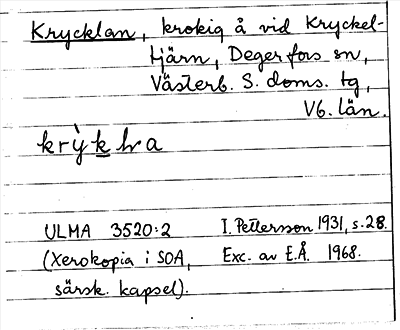 Krycklan, krokig å vid Kryckel-
tjärn, Degerfors sn,
Västerb. S. doms. tg,
Vb. län.
ULMA 3520:2 I. Pettersson 1931, s. 28.
(Xerokopia i SOA, Exc. av E.Å. 1968.
särsk. kapsel).